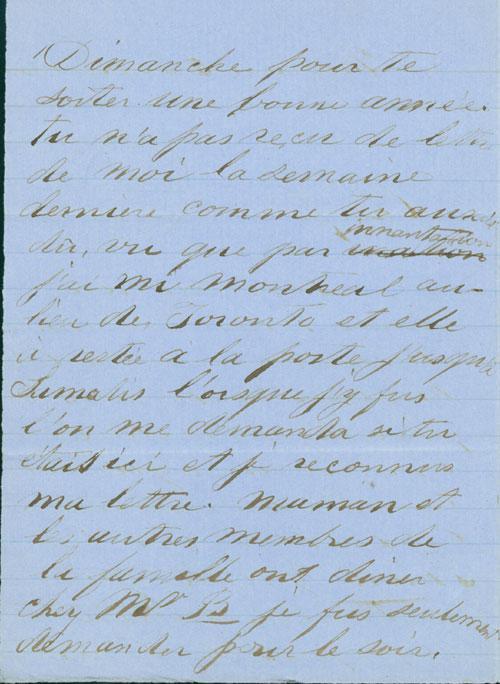 Dimanche pour te
soiter une bonne année.
tu n'a pas recu de lettre
de moi la semaine
derniere comme tu aurais
du, vu que par innantention
j'ai mi montreal au-
lieu de Toronto et elle
a restée à la poste jusqu'a
Samedis l'orsque j'y fus
l'on me demanda si tu
étais ici et je reconnus
ma lettre. maman et
les autres membres de
la famille ont diner
chez Mr je fus seulement
demander pour le soir.